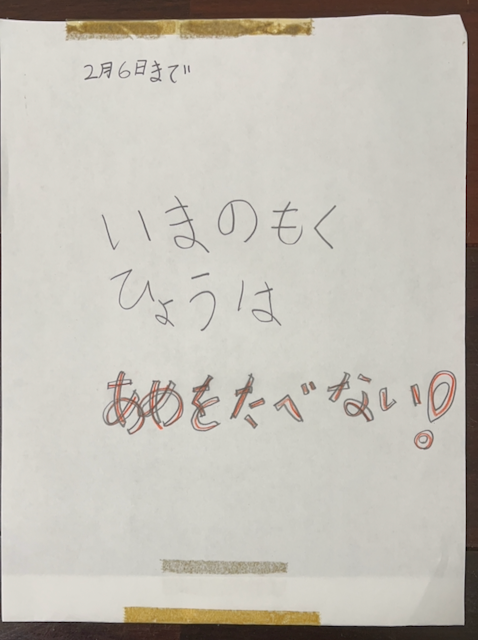 2月6日まで
いまのもく
ひょうは
あめをたべない!